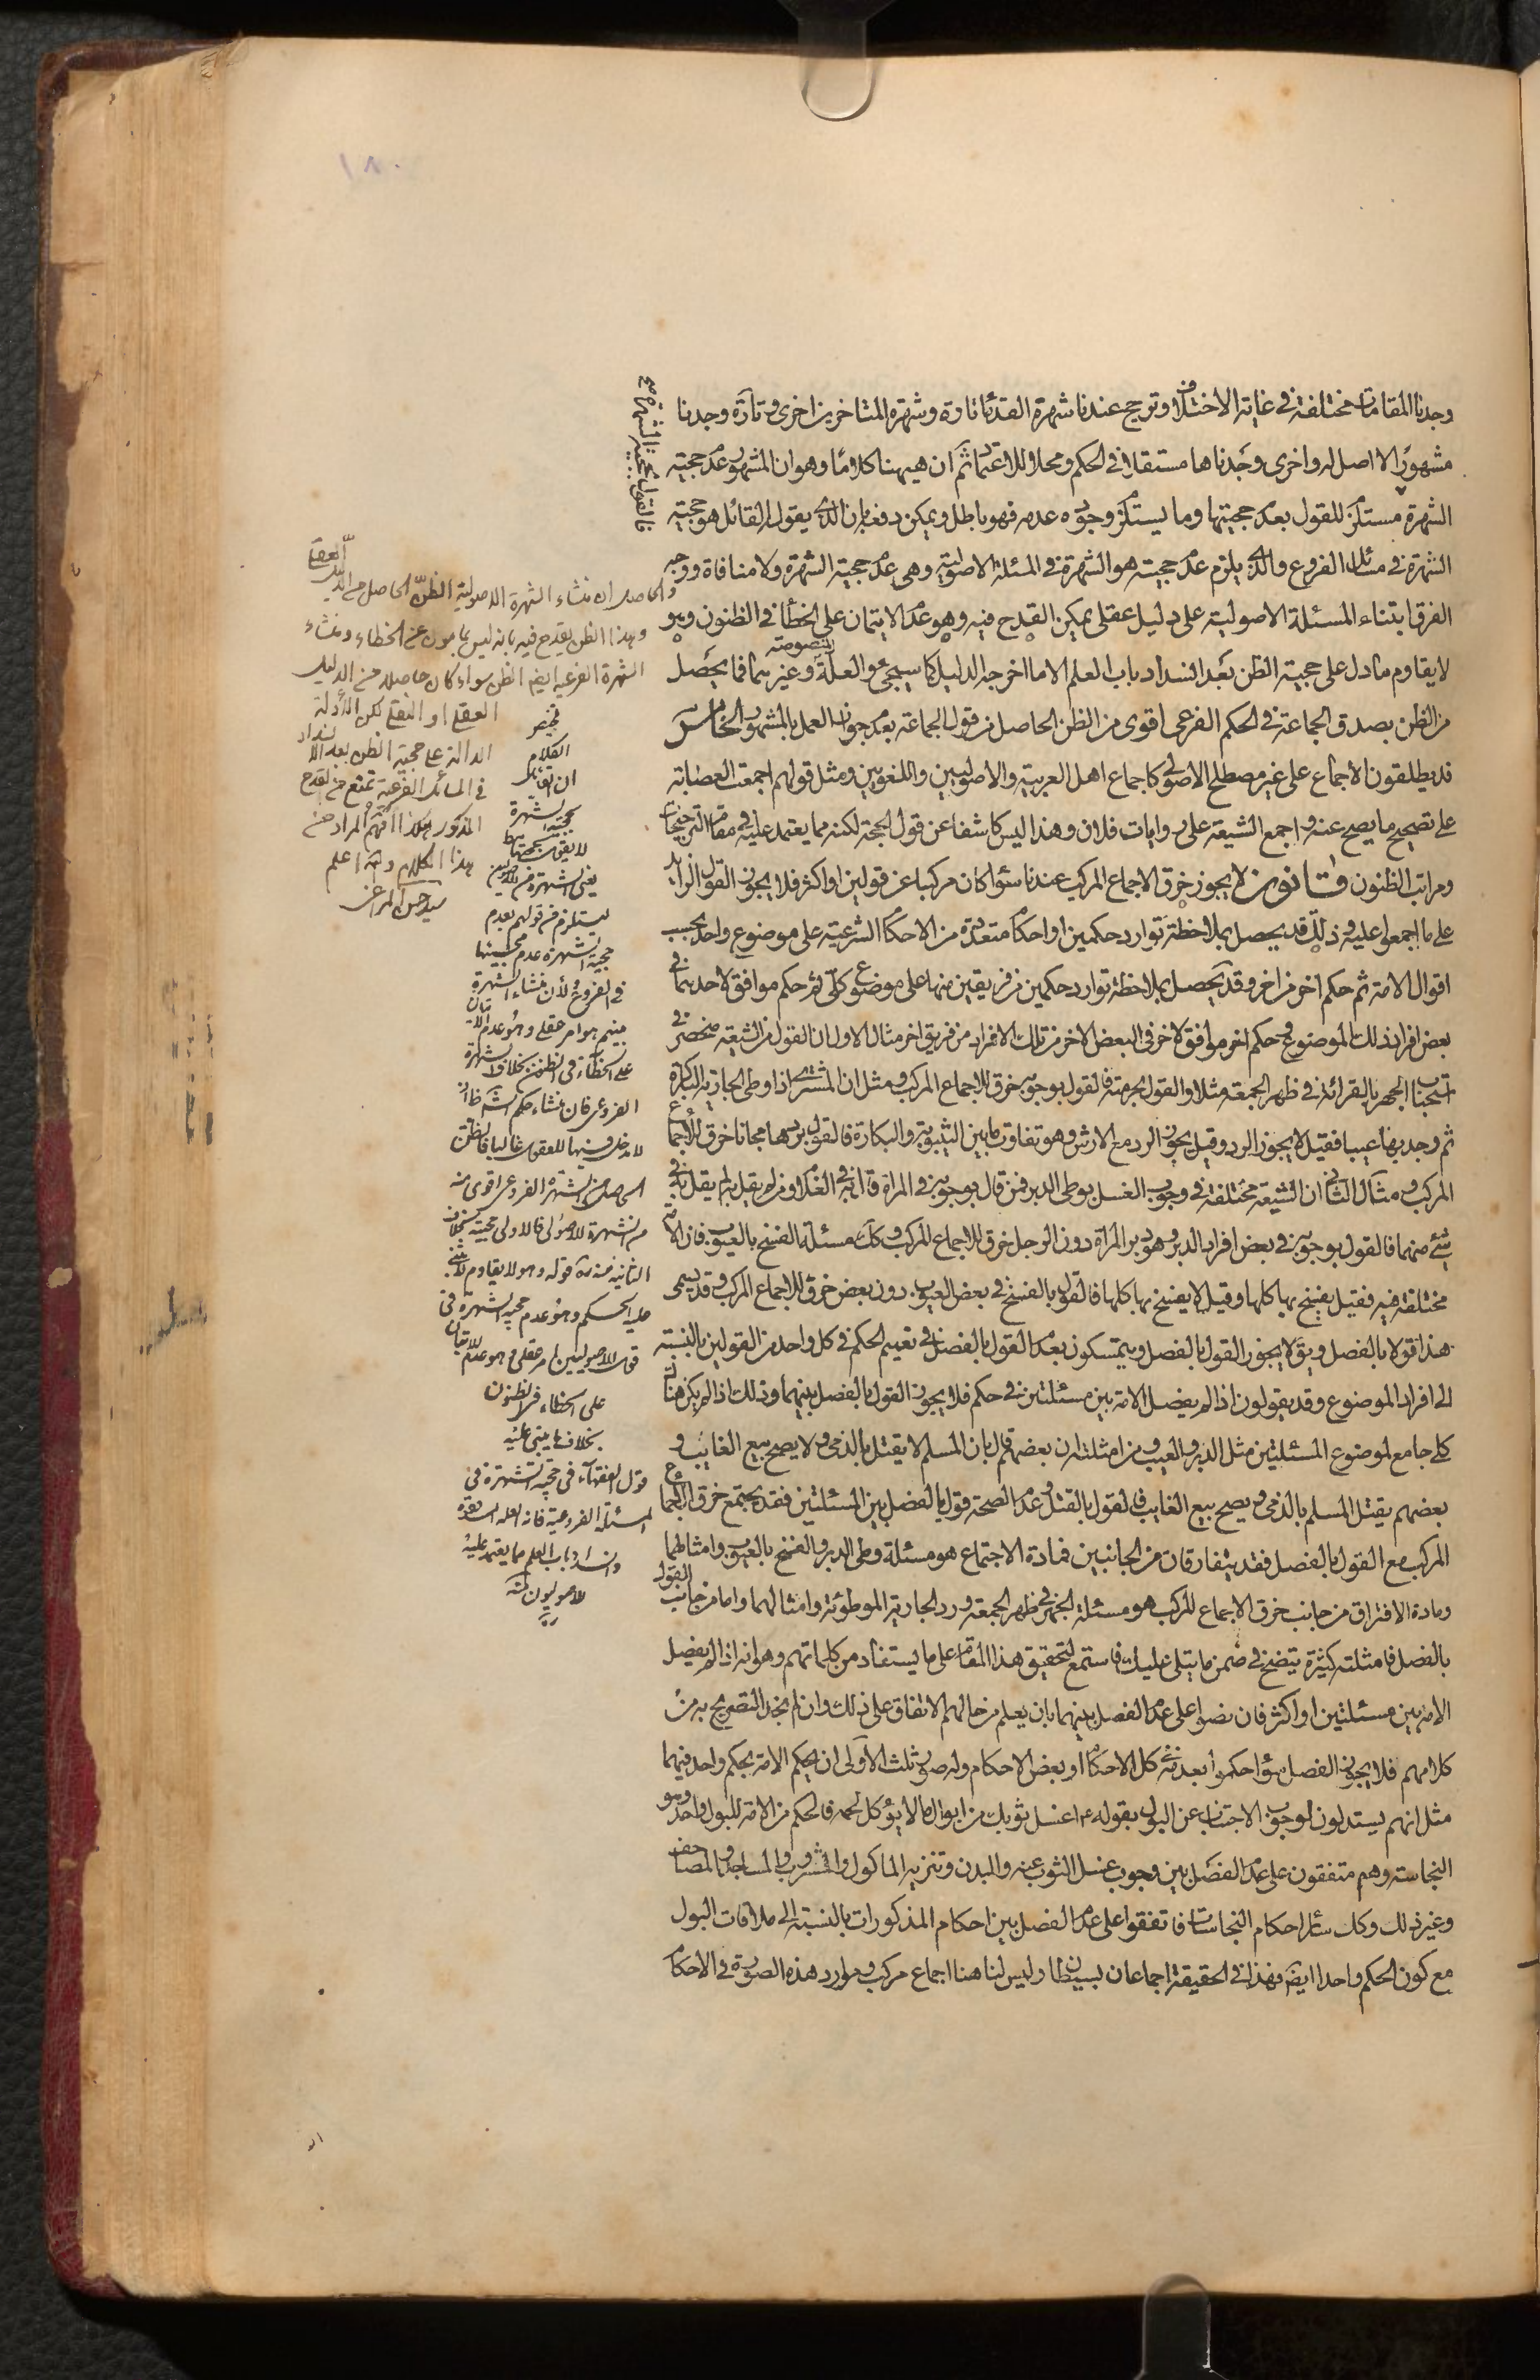 وجدنا المقامات مختلفة في غاية الاختلاف وترجح عندنا شهرة القدماء تارة وشهرة المتاخرين اخرى وتارة وجدنا
مشهورا لا اصل له واخرى وجدناها مستقلا في الحكم ومحلا للاعتماد ثم ان هيهنا كلاما وهو ان المشهور عدم حجية
الشهرة مستلزم للقول بعدم حجيتها وما يستلزم وجوده عدمه فهو باطل ويمكن دفعه بان الذي يقول القائل هو حجية
الشهرة في مسائل الفروع والذي يلزم عدم حجيته هو الشهرة في المسئلة الاصولية وهي عدم حجية الشهرة ولا منافاة ووجه
الفرق ابتناء المسئلة الاصولية على دليل عقلي يمكن القدح فيه وهو عدم الايتمان على الخطأ في الظنون وهو
لا يقاوم ما دل على حجية الظن بعد انسداد باب العلم الا ما اخرجه الدليل كما سيجئ والعلة المنصوصة وغيرهما فما يحصل
من الظن بصدق الجماعة في الحكم الفرعي اقوى من الظن الحاصل من قول الجماعة بعدم جواز العمل بالمشهور الخامس
قد يطلقون الاجماع على غير مصطلح الاصولي كاجماع اهل العربية والاصوليين واللغويين ومثل قولهم اجمعت العصابة
على تصحيح ما يصح عنه واجمع الشيعة على روايات فلان وهذا ليس كاشفا عن قول الحجة لكنه مما يعتمد عليه في مقام الترجيحات
ومراتب الظنون قانون لا يجوز خرق الاجماع المركب عندنا سواء كان مركبا عن قولين او اكثر فلا يجوز القول الزايد
على ما اجمعوا عليه وذلك قد يحصل بملاحظة توارد حكمين او احكام متعددة من الاحكام الشرعية على موضوع واحد بحسب
اقوال الامة ثم حكم اخر من اخر وقد يحصل بملاحظة توارد حكمين من فريقين منها على موضوع كلي ثم حكم موافق لاحدهما في
بعض افراد ذلك الموضوع وحكم اخر موافق لاخر في البعض الاخر من تلك الافراد من فريق اخر مثال الاول ان القول من الشيعة منحصر في
استحباب الجهر بالقرائة في ظهر الجمعة مثلا والقول بحرمته فالقول بوجوبه خرق للاجماع المركب ومثل ان المشتري اذا وطى الجارية الباكرة
ثم وجد بها عيبا فقيل لا يجوز الرد وقيل يجوز الرد مع الارش وهو تفاوت ما بين الثيبوبة والبكارة فالقول بردها مجانا خرق للاجماع
المركب ومثال الثاني ان الشيعة مختلفة في وجوب الغسل بوطي الدبر فمن قال بوجوبه في المرأة قال به في الغلام ومن لم يقل به لم يقل به في
شئ منهما فالقول بوجوبه في بعض افراد الدبر وهو دبر المرأة دون الرجل خرق للاجماع المركب وكك مسئلة الفسخ بالعيوب فان الامة
مختلفة فيه فقيل يفسخ بها كلها وقيل لا يفسخ بها كلها فالقول بالفسخ في بعض العيوب دون بعض خرق للاجماع المركب وقد يسمى
هذا قولا بالفصل ويق لا يجوز القول بالفصل ويتمسكون بعدم القول بالفصل في تعميم الحكم في كل واحد من القولين بالنسبة
الى افراد الموضوع وقد يقولون اذا لم يفصل الامة بين مسئلتين في حكم فلا يجوز القول بالفصل بينهما وذلك اذا لم يكن هناك
كلي جامع لموضوع المسئلتين مثل الدبر والعيوب ومن امثلته ان بعضهم قال بان المسلم لا يقتل بالذمي ولا يصح بيع الغايب و
بعضهم يقتل المسلم بالذمي ويصح بيع الغايب فالقول بالقتل وعدم الصحة قول بالفصل بين المسئلتين فقد يجتمع خرق الاجماع
المركب مع القول بالفصل فقد يتفارقان من الجانبين فمادة الاجتماع هو مسئلة وطى الدبر والفسخ بالعيوب وامثالهما
ومادة الافتراق من جانب خرق الاجماع المركب هو مسئلة الجهر في ظهر الجمعة ورد الجارية الموطوئة وامثالهما واما من جانب القول
بالفصل فامثلته كثيرة يتضح في ضمن ما يتلى عليك فاستمع لتحقيق هذا المقام على ما يستفاد من كلماتهم وهو انه اذا لم يفصل
الامة بين مسئلتين او اكثر فان نصوا على عدم الفصل بينهما بان يعلم من حالهم الاتفاق على ذلك وان لم نجد التصريح به من
كلامهم فلا يجوز الفصل سواء حكموا بعدمه في كل الاحكام او بعض الاحكام وله صور ثلث الاولى ان يحكم الامة بحكم واحد فيهما
مثل انهم يستدلون لوجوب الاجتناب عن البول بقوله ع اغسل ثوبك من ابوال ما لا يؤكل لحمه فالحكم من الامة للبول واحد وهو
النجاسة وهم متفقون على عدم الفصل بين وجوب غسل الثوب عنه والبدن وتنزيه الماكول والمشروب والمساجد والمصاحف
وغير ذلك وكك سائر احكام النجاسات فاتفقوا على عدم الفصل بين احكام المذكورات بالنسبة الى ملاقات البول
مع كون الحكم واحدا ايضا فهذا في الحقيقة اجماعان بسيطان وليس لنا هنا اجماع مركب وموارد هذه الصورة في الاحكام
والحاصل ان منشاء الشهرة الاصولية الظن الحاصل من الدليل العقلي
وهذا الظن يقدح فيه بانه ليس بمامون عن الخطاء ومنشاء
الشهرة الفرعية ايضا الظن سواء كان حاصلا من الدليل
العقلي او النقلي لكن الادلة
الدالة على حجية الظن بعد الانسداد
في المسائل الفرعية تمنع من القدح
المذكور هكذا افهم المراد من
هذا الكلام والله اعلم
الكلام
ان القائل
بحجية الشهرة
ليستلزم من قولهم بعدم
حجية الشهرة عدم حجيتها
في الفروع ولان منشاء الشهرة
على الخطاء في الظنون بخلاف الشهرة
من الشهرة الاصولي فالاولى حجية بخلاف
على الخطاء في الظنون
بخلاف ما يبتني عليه
قول الفقهاء في حجية الشهرة في
وانسداد باب العلم مما يعتمد عليه
الاصوليون منه
١٨٠